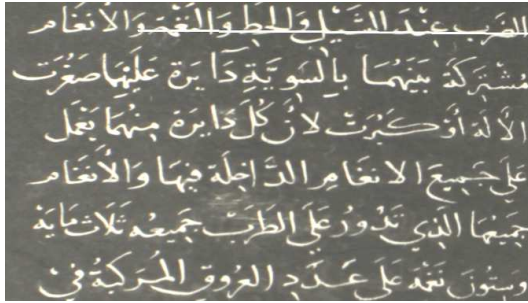 الضرب عند الشيل والحط والنغمة والانغام
مشتركة بينهما بالسوية دايرة عليها صغرت
الالة او كبرت لان كل دايرة منهما يعمل
على جميع الانغام الداخلة فيها والانغام
جميعها الذي تدور على الطرب جميعه ثلاث ماية
وستون نغمه على عدد العروق المركبة في